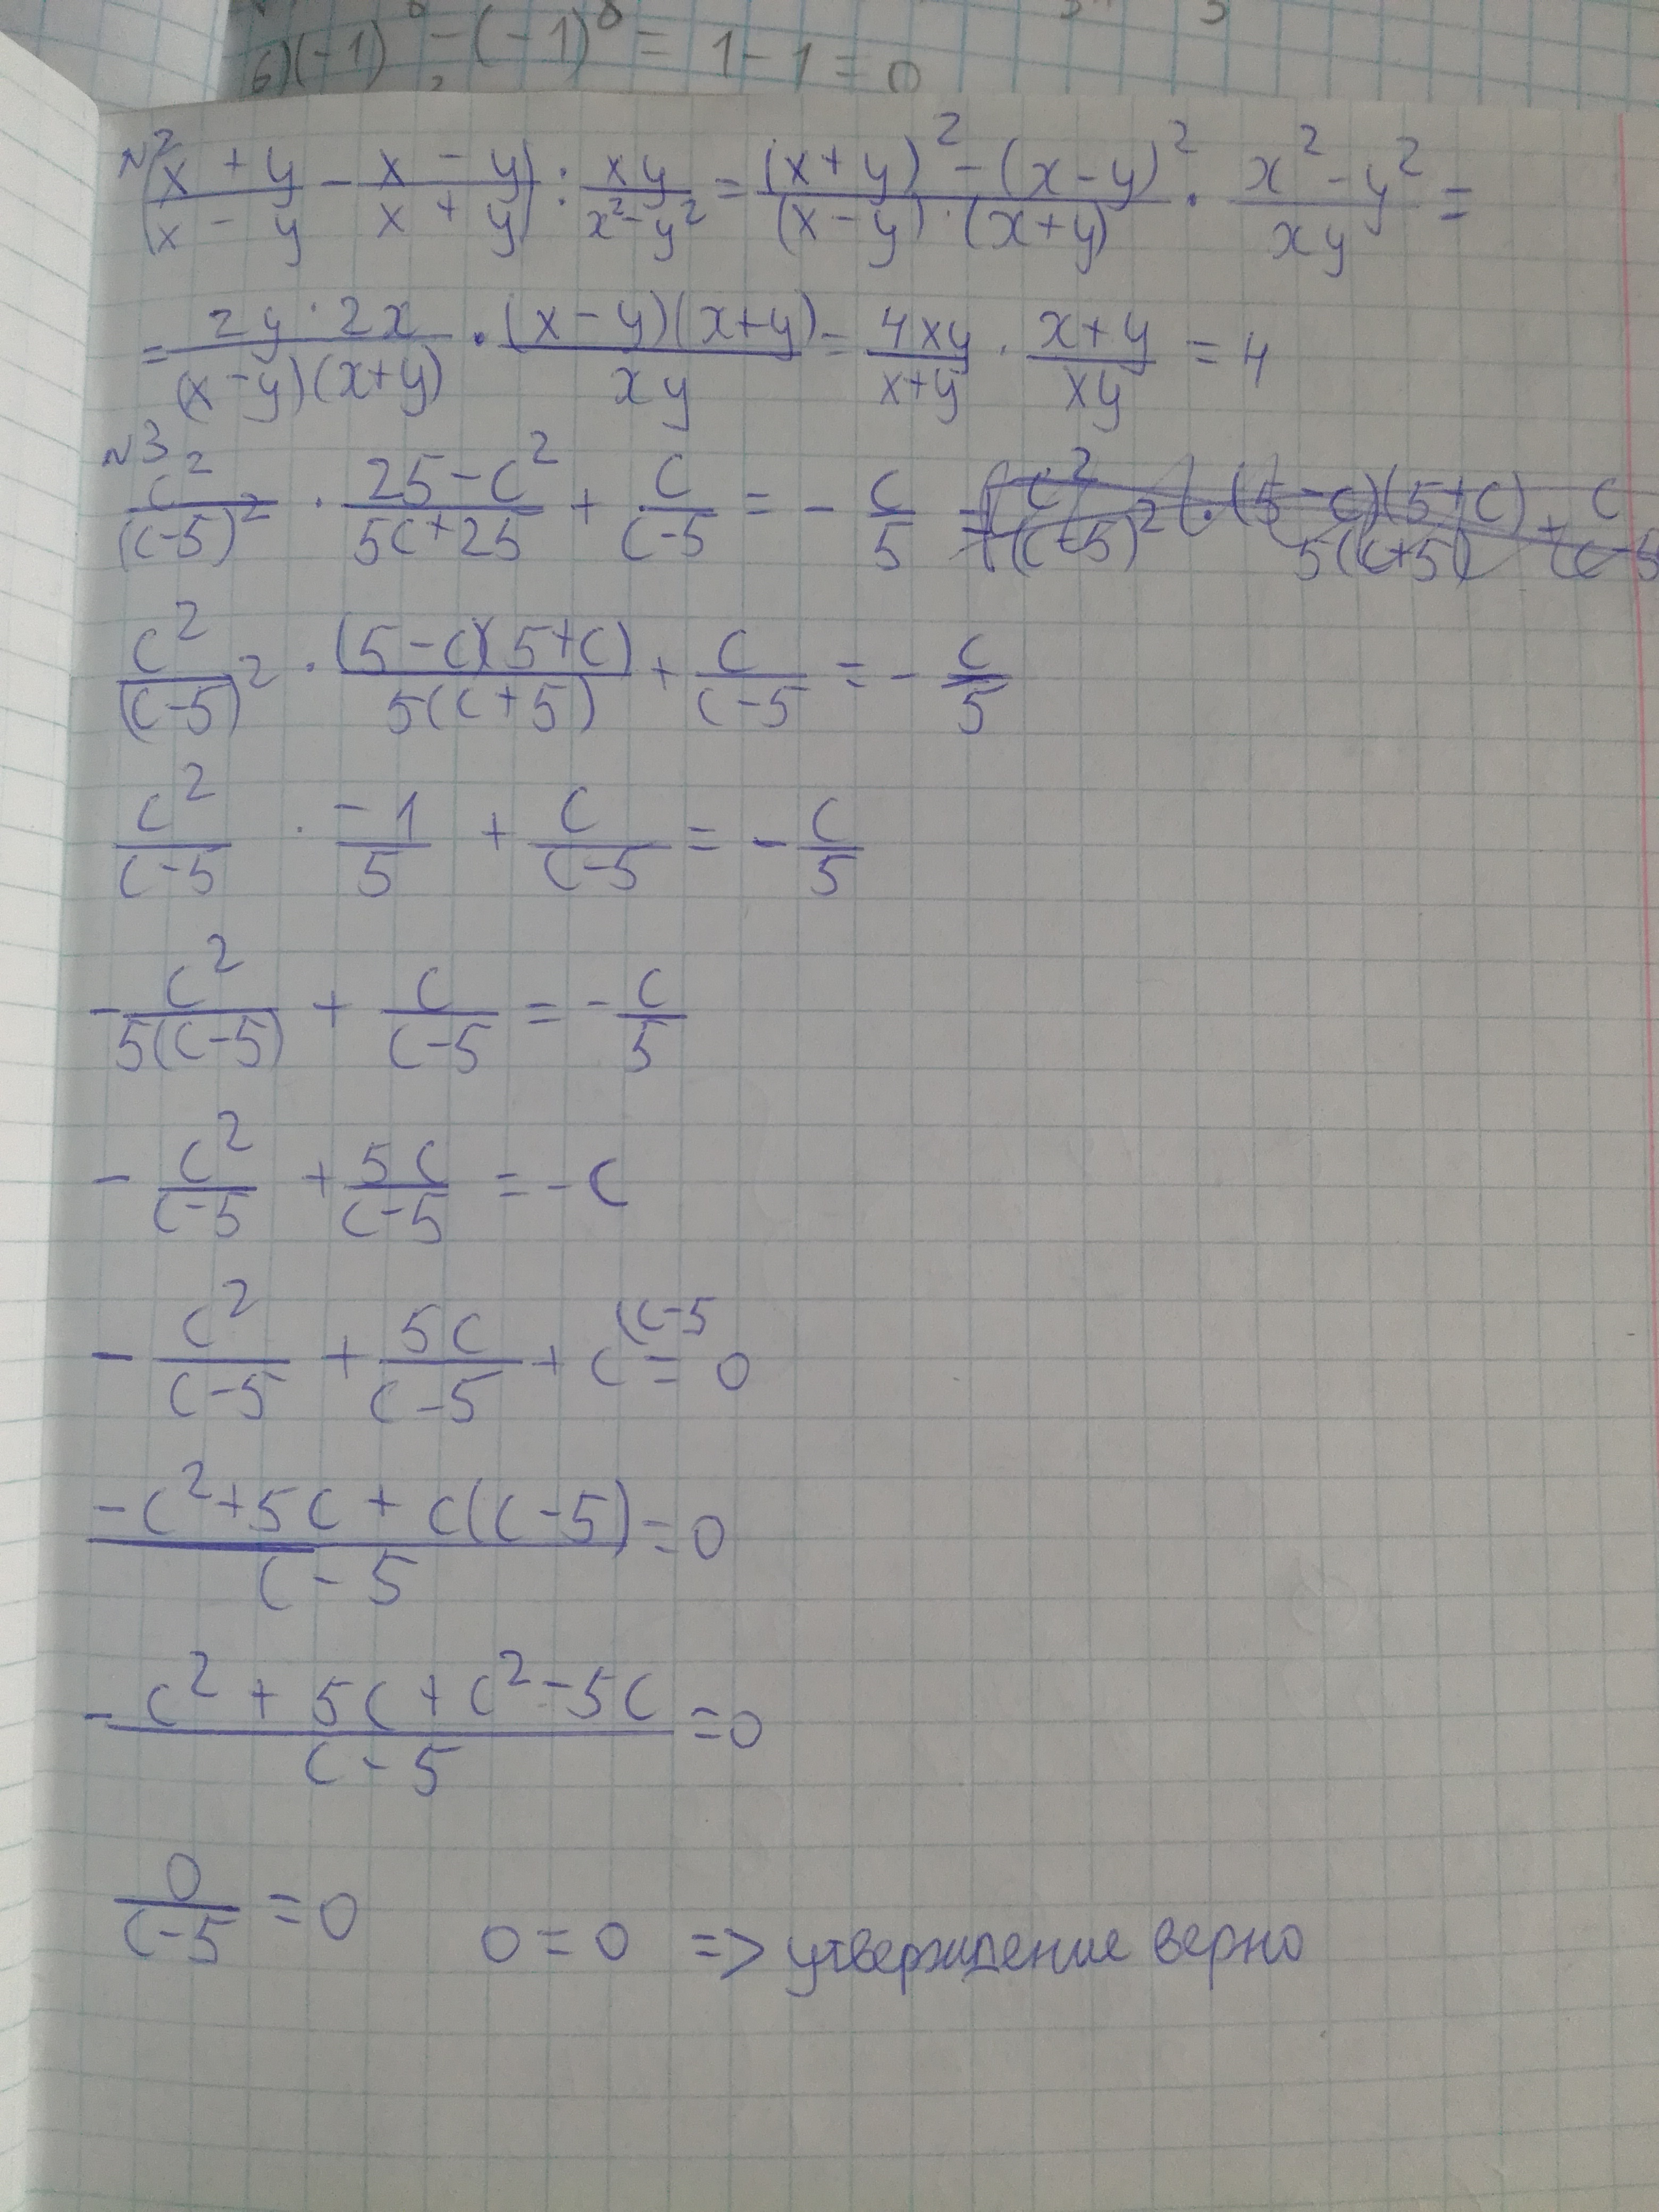 6)(-1) - (-1)⁸ = 1-1=0
№2 (x+y/x-y - x-y/x+y) : xy/x²-y² = (x+y)²-(x-y)²/(x-y)·(x+y) · x²-y²/xy =
= 2y·2x/(x-y)(x+y) · (x-y)(x+y)/xy = 4xy/x+y · x+y/xy = 4
№3
c²/(c-5)² · 25-c²/5c+25 + c/c-5 = - c/5
c²/(c-5)² · (5-c)(5+c)/5(c+5) + c/c-5 = - c/5
c²/c-5 · -1/5 + c/c-5 = - c/5
- c²/5(c-5) + c/c-5 = - c/5
- c²/c-5 + 5c/c-5 = -c
- c²/c-5 + 5c/c-5 + c (c-5 = 0
-c²+5c+c(c-5)/c-5 = 0
-c²+5c+c²-5c/c-5 = 0
0/c-5 = 0 0=0 => утверждение верно